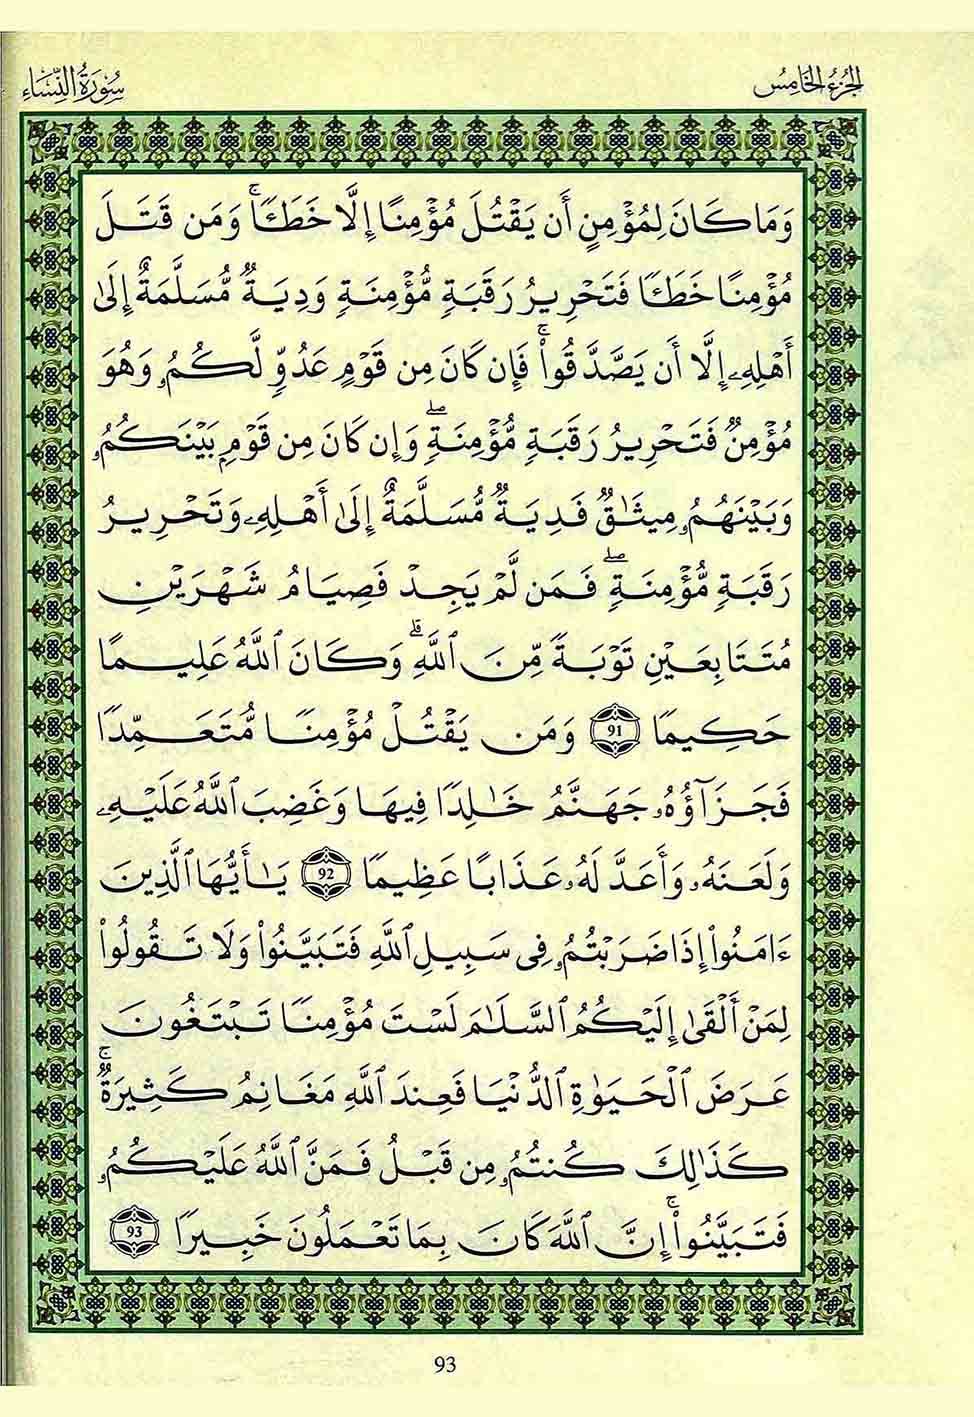 الجزء الخامس
سورة النساء
وَمَا كَانَ لِمُؤْمِنٍ أَن يَقْتُلَ مُؤْمِنًا إِلَّا خَطَـًٔاۚ وَمَن قَتَلَ
مُؤْمِنًا خَطَـًٔا فَتَحْرِيرُ رَقَبَةٍ مُّؤْمِنَةٍ وَدِيَةٌ مُّسَلَّمَةٌ إِلَىٰ
أَهْلِهِۦ إِلَّا أَن يَصَّدَّقُواْۚ فَإِن كَانَ مِن قَوْمٍ عَدُوٍّ لَّكُمُۥ وَهُوَ
مُؤْمِنٌ فَتَحْرِيرُ رَقَبَةٍ مُّؤْمِنَةٍۖ وَإِن كَانَ مِن قَوْمٍۭ بَيْنَكُمُۥ
وَبَيْنَهُمُۥ مِيثَٰقٌ فَدِيَةٌ مُّسَلَّمَةٌ إِلَىٰ أَهْلِهِۦ وَتَحْرِيرُ
رَقَبَةٍ مُّؤْمِنَةٍۖ فَمَن لَّمْ يَجِدْ فَصِيَامُ شَهْرَيْنِ
مُتَتَابِعَيْنِ تَوْبَةً مِّنَ ٱللَّهِۗ وَكَانَ ٱللَّهُ عَلِيمًا
حَكِيمًا 91 وَمَن يَقْتُلْ مُؤْمِنًا مُّتَعَمِّدًا
فَجَزَآؤُهُۥ جَهَنَّمُ خَٰلِدًا فِيهَا وَغَضِبَ ٱللَّهُ عَلَيْهِۦ
وَلَعَنَهُۥ وَأَعَدَّ لَهُۥ عَذَابًا عَظِيمًا 92 يَٰأَيُّهَا ٱلَّذِينَ
ءَامَنُواْ إِذَا ضَرَبْتُمُۥ فِى سَبِيلِ ٱللَّهِ فَتَبَيَّنُواْ وَلَا تَقُولُواْ
لِمَنْ أَلْقَىٰ إِلَيْكُمُ ٱلسَّلَٰمَ لَسْتَ مُؤْمِنًا تَبْتَغُونَ
عَرَضَ ٱلْحَيَوٰةِ ٱلدُّنْيَا فَعِندَ ٱللَّهِ مَغَانِمُ كَثِيرَةٌۚ
كَذَٰلِكَ كُنتُمُۥ مِن قَبْلُ فَمَنَّ ٱللَّهُ عَلَيْكُمُۥ
فَتَبَيَّنُواْۚ إِنَّ ٱللَّهَ كَانَ بِمَا تَعْمَلُونَ خَبِيرًا 93
93